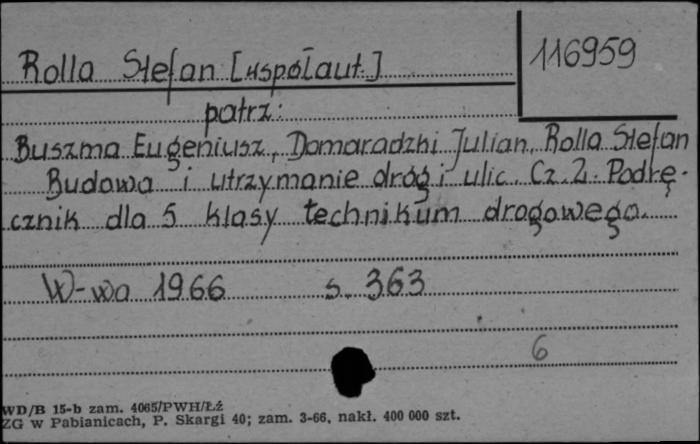 116959
Rolla Stefan [współaut.]
patrz:
Buszma Eugeniusz, Domaradzki Julian, Rolla Stefan
Budowa i utrzymanie dróg i ulic. Cz. 2. Podrę-
cznik dla 5 klasy technikum drogowego.
W-wa 1966 s. 363
6
WD/B 15-b zam. 4065/PWH/Łź
ZG w Pabianicach, P. Skargi 40; zam. 3-66, nakł. 400 000 szt.